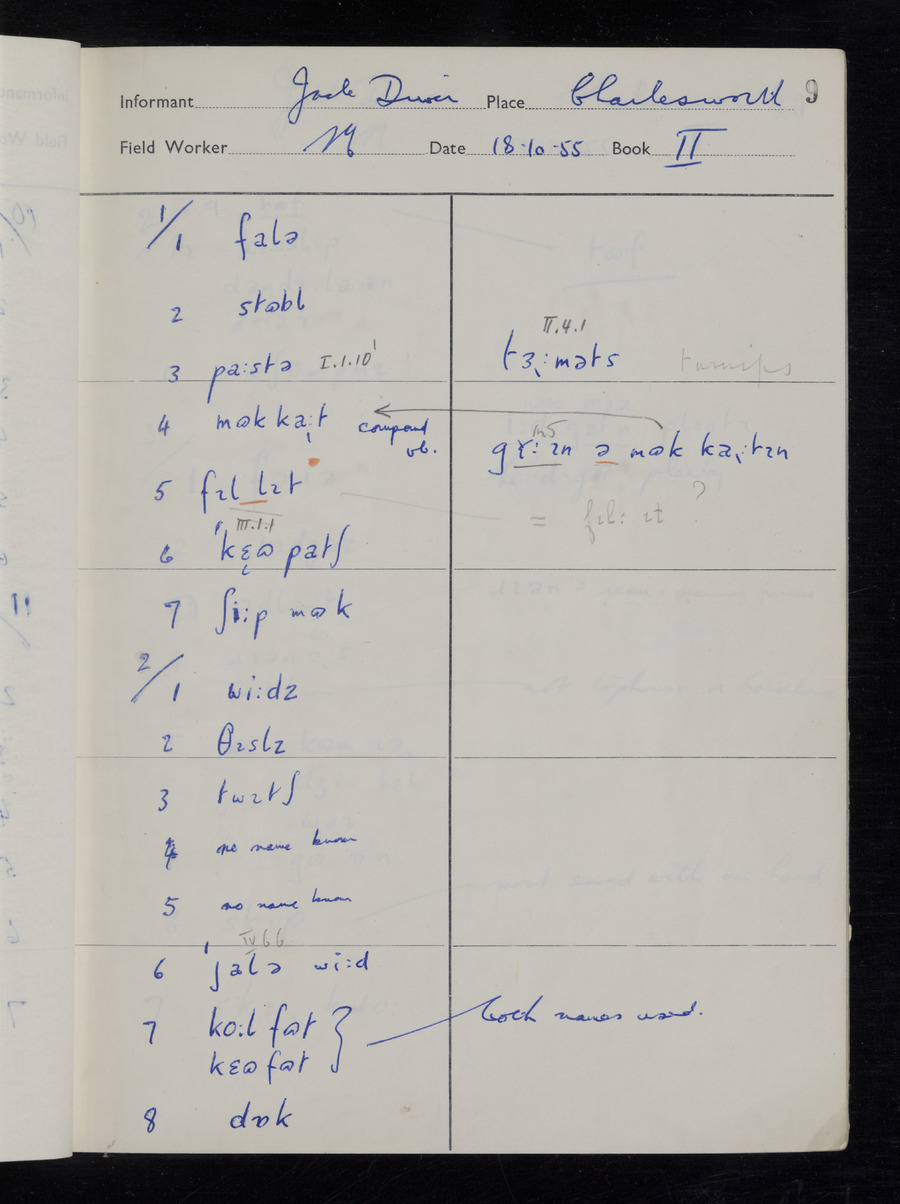 Informant Jack Driver Place Charlesworth 9
Field Worker Date 18·10·55 Book II
1/1 falə
2 stɷbl
3 pa:stə I.1.10
II.4.1
tɜ̣:məts turnips
4 mɷk ka̩:t compound vb.
m5
gɤ:ɪn ə mɷk ka̩:tɪn
5 fɪl lɪt
= fɪl: ɪt ?
III.1.1
6 ˈkɛ̜ɷ patʃ
7 ʃi:p mɷk
2/1 wi:dz
2 θɪslz
3 twɪtʃ
4 no name known
5 no name known
IV 6 6
6 ˈjalə wi:d
7 ko:l fɷt } both names used.
kɛɷ fɷt
8 dɒk